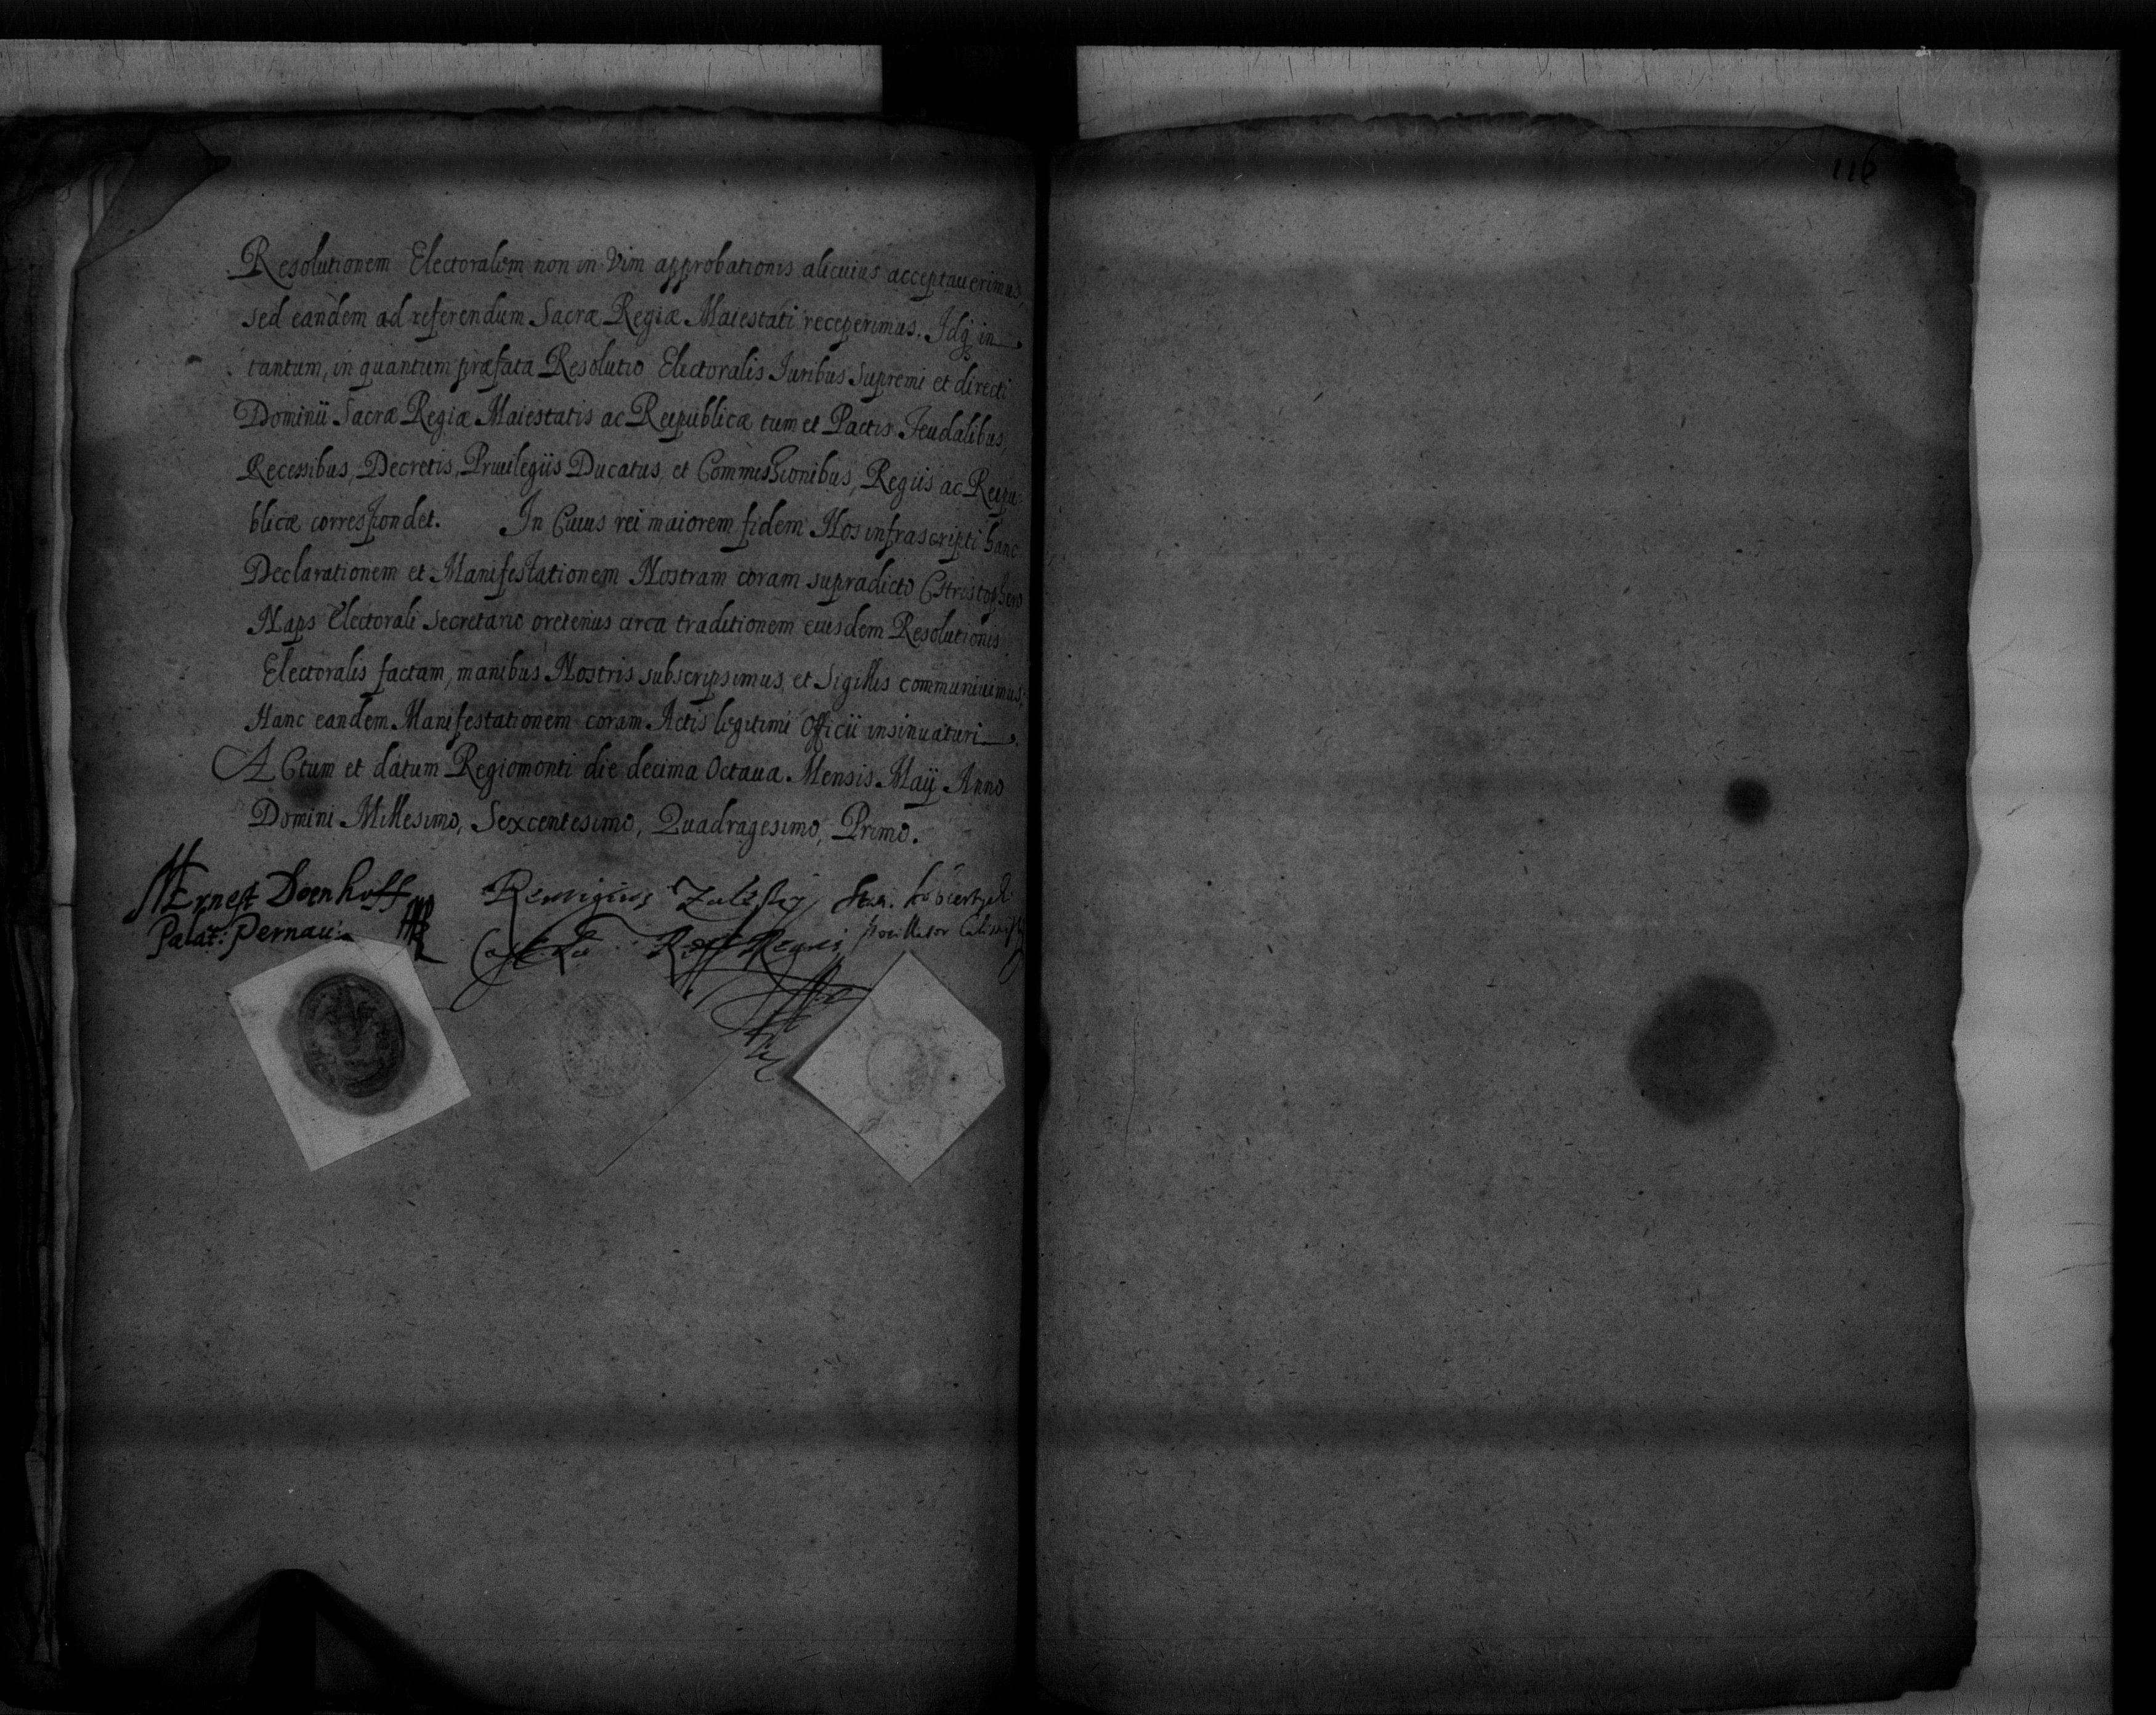 Resolutionem Electoralem non in Vim approbationis alicuius acceptauerimus,
sed eandem ad referendum Sacræ Regiæ Maiestati receperimus. Idq̃ in
tantum, in quantum præfata Resolutio Electoralis Iuribus Supremi et directi
Dominii Sacræ Regiæ Maiestatis ac Reipublicæ tum et Pactis Feudalibus,
Recessibus, Decretis, Priuilegiis Ducatus, et Commissionibus, Regiis ac Reipu-
blicæ correspondet. In Cuius rei maiorem fidem Nos infrascripti hanc
Declarationem et Manifestationem Nostram coram supradicto Christophero
Naps Electorali Secretario oretenus circa traditionem eiusdem Resolutionis
Electoralis factam, manibus Nostris subscripsimus, et Sigillis communiuimus;
Hanc eandem Manifestationem coram Actis legitimi Officii insinuaturi.
ACtum et datum Regiomonti die decima Octaua Mensis Maij Anno
Domini Millesimo, Sexcentesimo, Quadragesimo, Primo.
Ernest Doenhoff Remigius Zaleski
Palat: Pernau: Regni
116